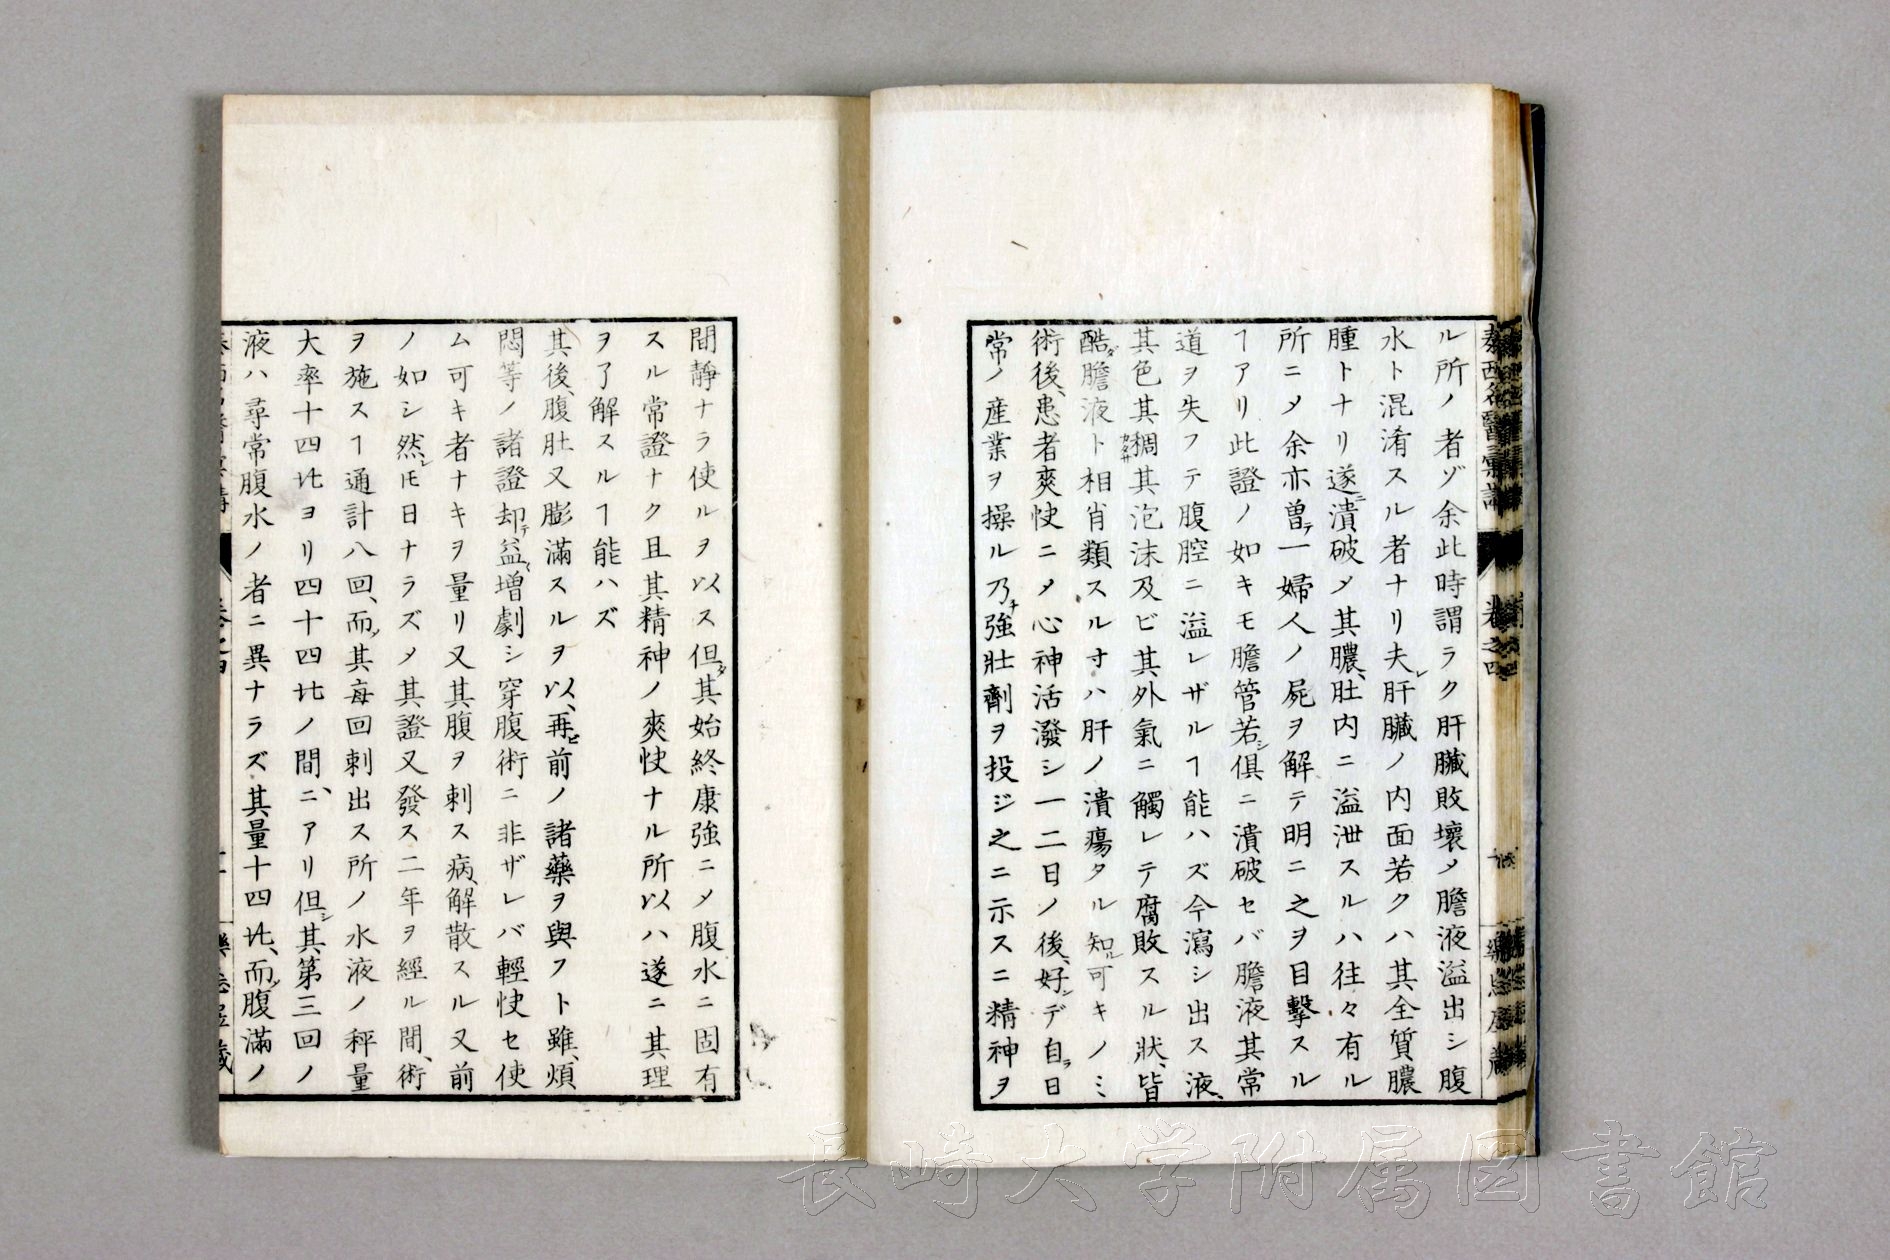 泰西名醫彙講 卷之四
ル所ノ者ゾ余此時謂ラク肝臓敗壞メ膽液溢出シ腹
水ト混淆スル者ナリ夫レ肝臓ノ内面若クハ其全質膿
腫トナリ遂ニ潰破メ其膿、肚内ニ溢泄スルハ往々有ル
所ニメ余亦曽テ一婦人ノ屍ヲ解テ明ニ之ヲ目擊スル
ヿアリ此證ノ如キモ膽管若シ俱ニ潰破セバ膽液其常
道ヲ失フテ腹腔ニ溢レザルヿ能ハズ今瀉シ出ス液、
其色其稠其泡沫及ビ其外氣ニ觸レテ腐敗スル狀、皆
酷ダ膽液ト相肖類スル寸ハ肝ノ潰瘍タル知ル可キノミ
術後、患者爽快ニメ心神活潑シ一二日ノ後、好シデ自ラ日
常ノ産業ヲ操ル乃チ強壯劑ヲ投ジ之ニ示スニ精神ヲ
間靜ナラ使ルヲ以ス但ダ其始終康強ニメ腹水ニ固有
スル常證ナク且其精神ノ爽快ナル所以ハ遂ニ其理
ヲ了解スルヿ能ハズ
其後、腹肚又膨滿スルヲ以、再ビ前ノ諸藥ヲ與フト雖、煩
悶等ノ諸證却テ益〻增劇シ穿腹術ニ非ザレバ輕快セ使
ム可キ者ナキヲ量リ又其腹ヲ刺ス病、解散スル又前
ノ如シ然レ𪜈日ナラズメ其證又發ス二年ヲ經ル間、術
ヲ施スヿ通計八回、而メ其每回刺出ス所ノ水液ノ秤量
大率十四比ヨリ四十四比ノ間、ニアリ但シ其第三回ノ
液ハ尋常腹水ノ者ニ異ナラズ其量十四比、而メ腹滿ノ